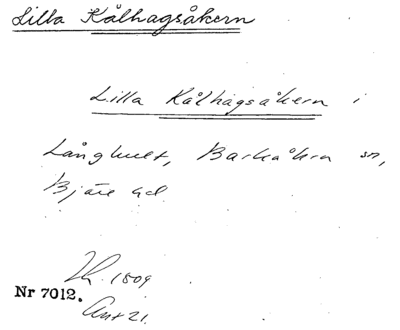 Lilla Kålhagsåkern
Lilla Kålhagsåkern i
Långhult, Barkåkra sn,
Bjäre hd.
Lh. 1809
Nr 7012.
Akt 21.